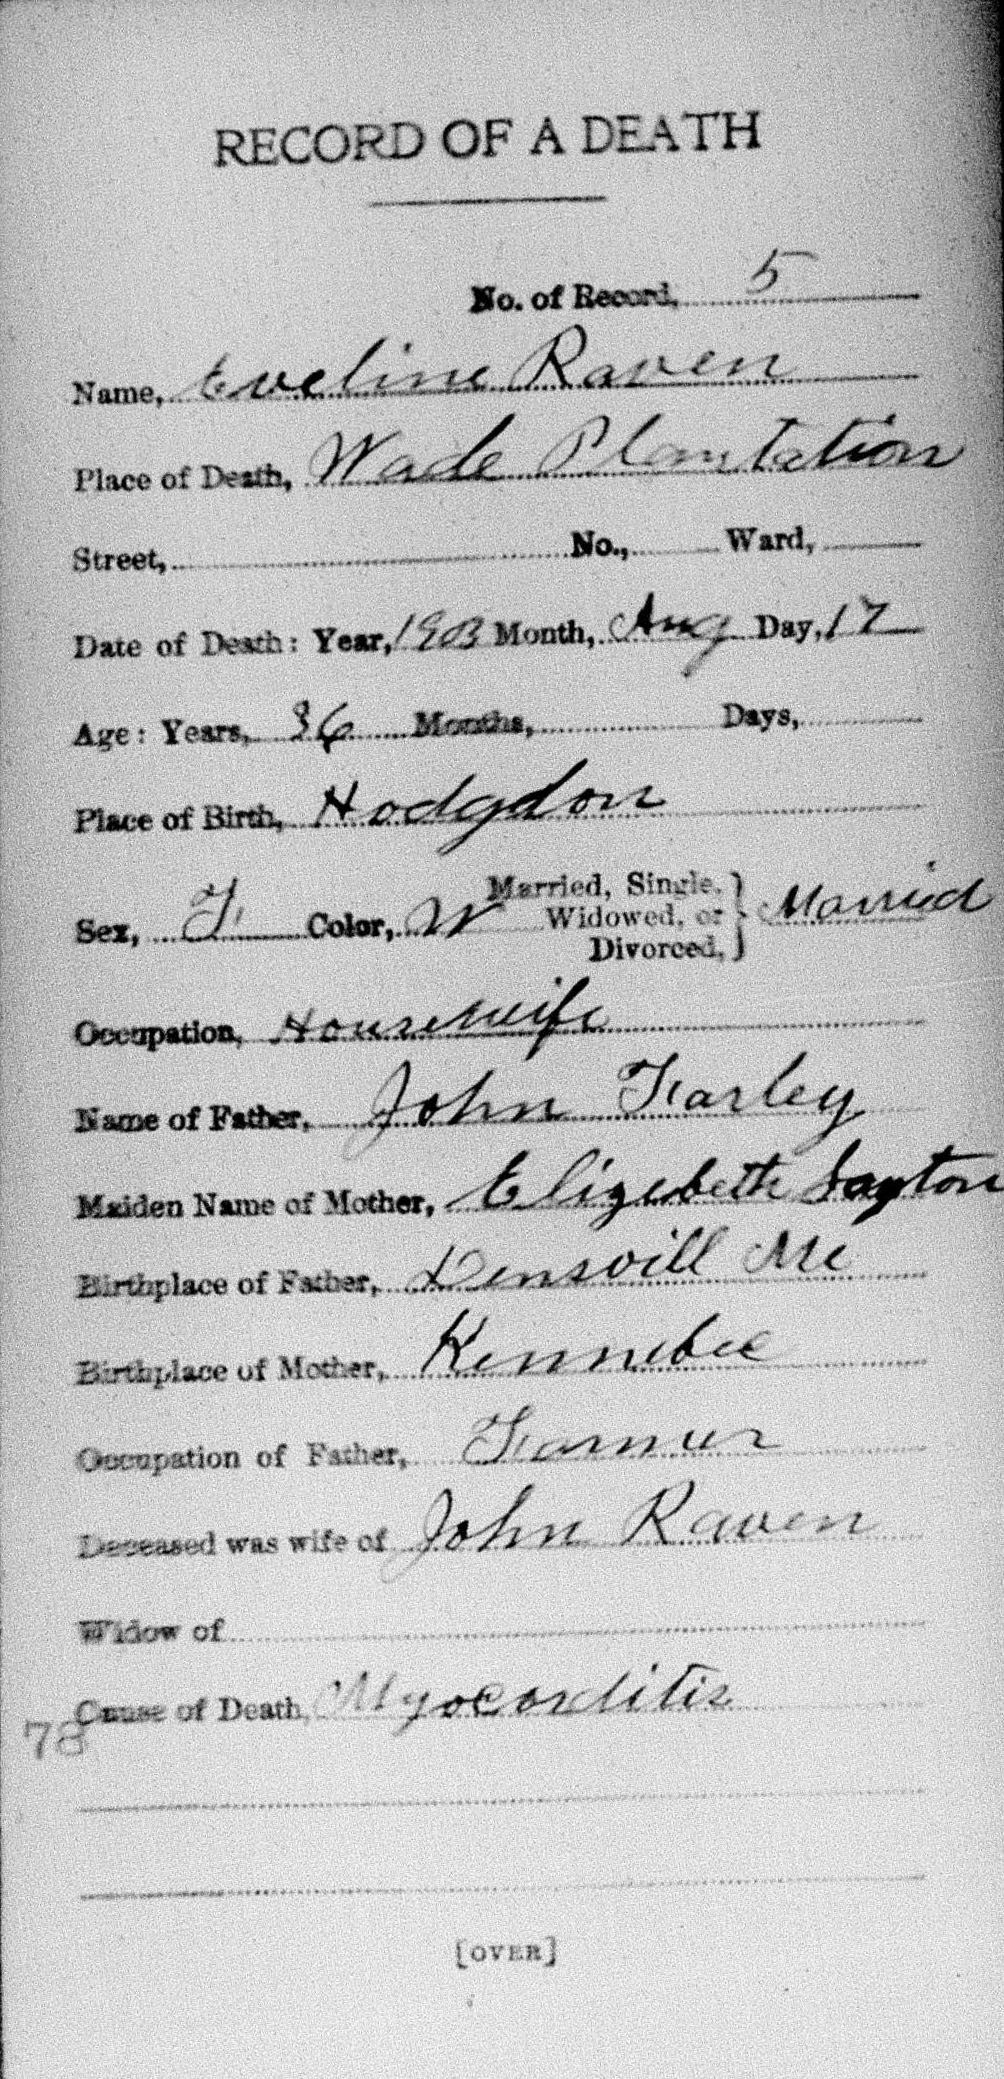 RECORD OF A DEATH
No. of Record, 5
Name, Eveline Raven
Place of Death, Wade Plantation
Street, No., Ward,
Date of Death: Year, 1913 Month, Aug Day, 17
Age: Years, 36 Months, Days,
Place of Birth, Hodgdon
Sex, F Color, W Married, Single, Widowed, or Divorced, } Married
Occupation, Housewife
Name of Father, John Farley
Maiden Name of Mother, Elizebeth
Birthplace of Father, Me
Birthplace of Mother, Kennebec
Occupation of Father, Farmer
Deceased was wife of John Raven
Widow of
Cause of Death, Myocorditis
78
[OVER]